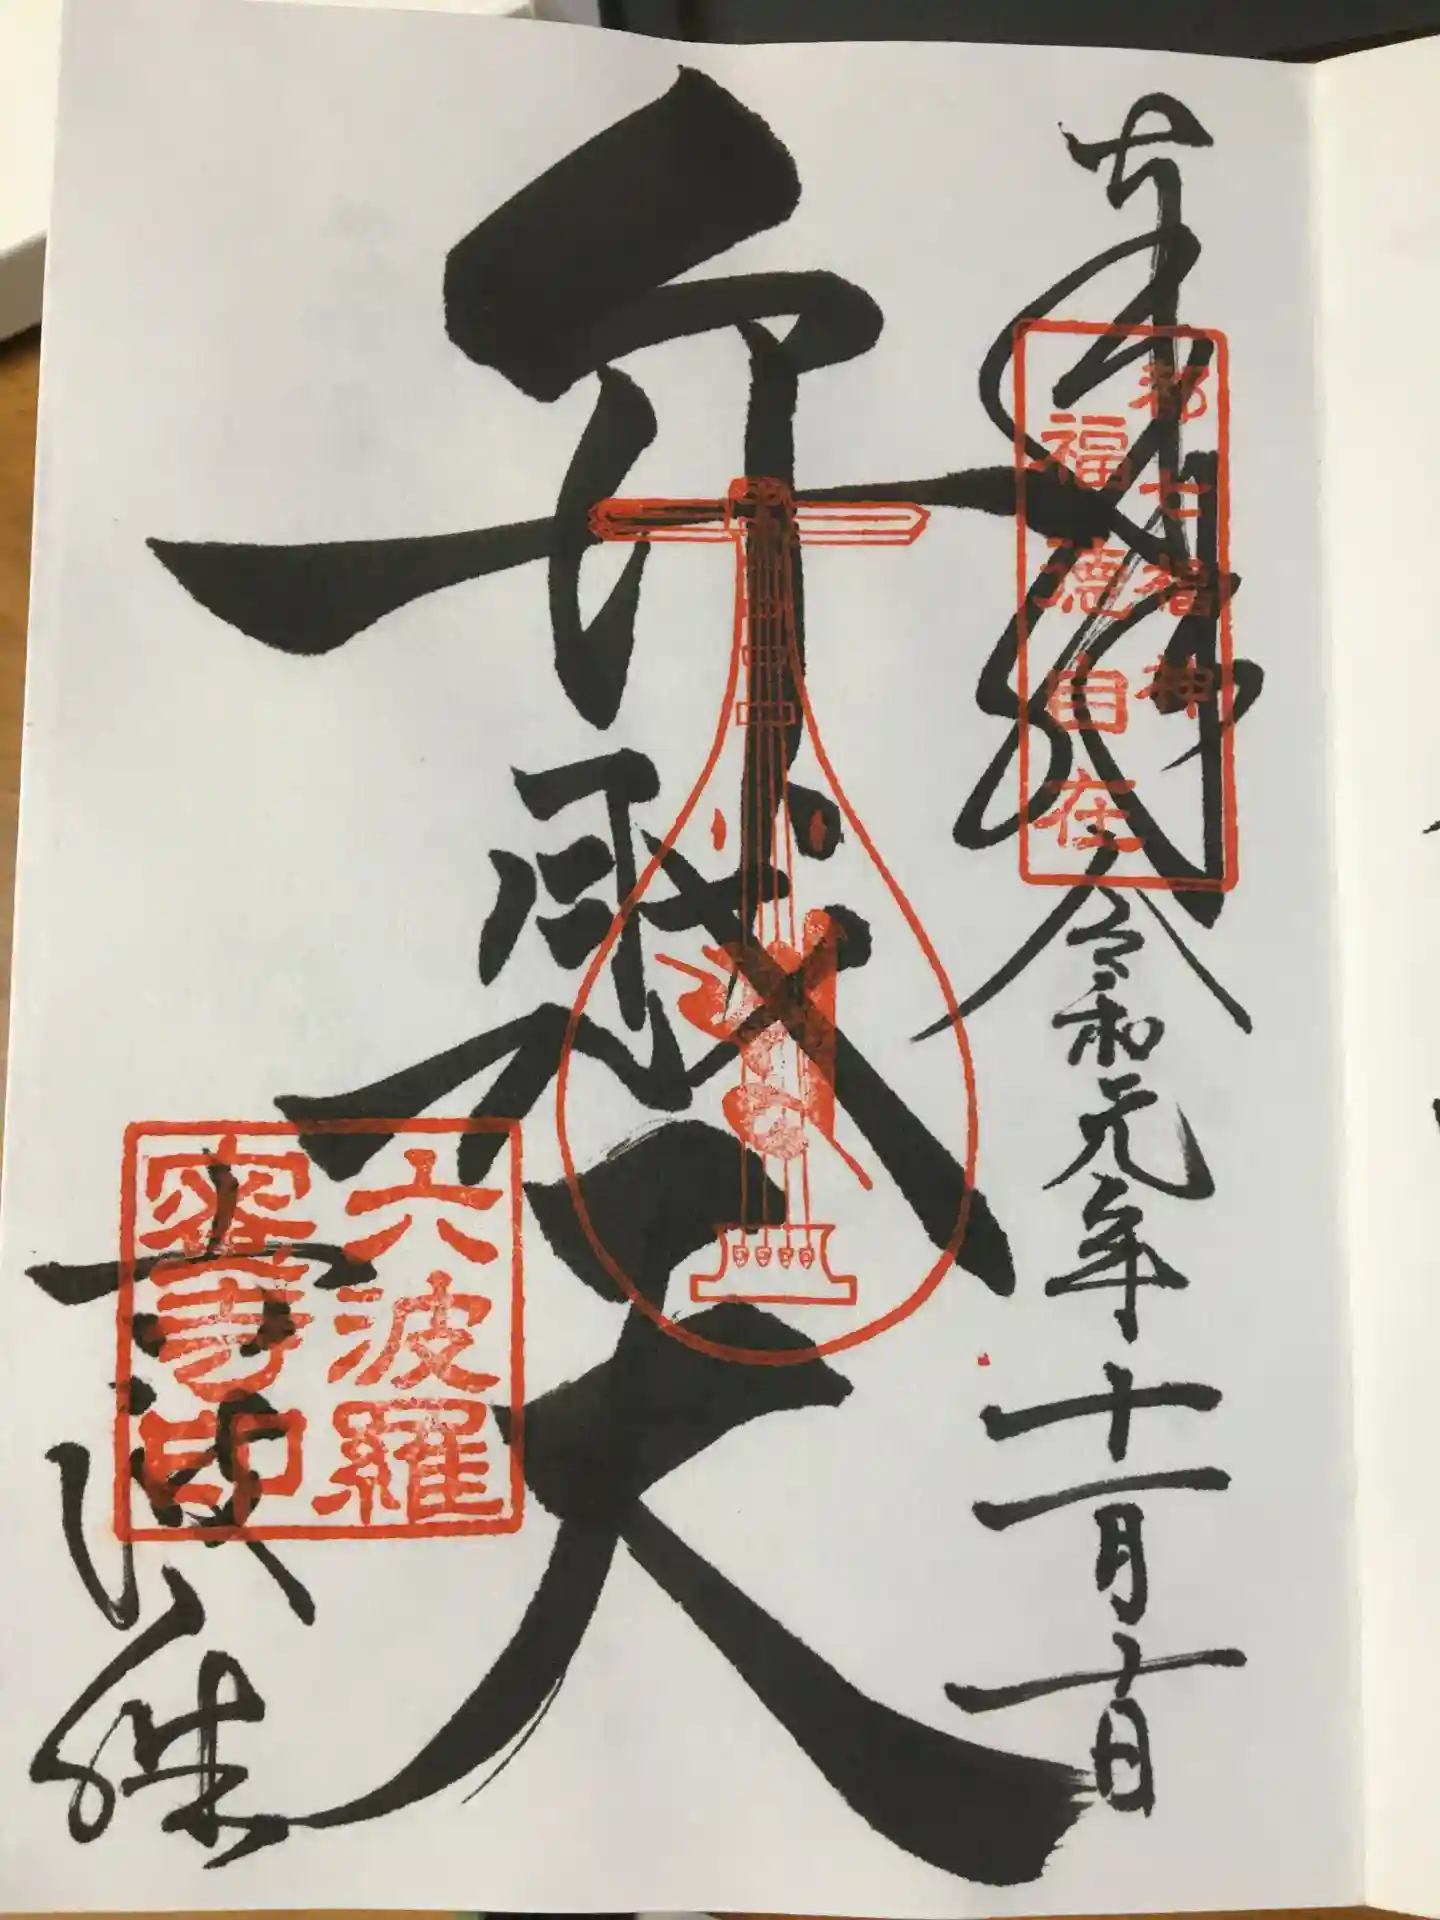 奉拝
令和元年十一月十日
都七福神
福徳自在
弁財天
六波羅
蜜寺印
六波羅